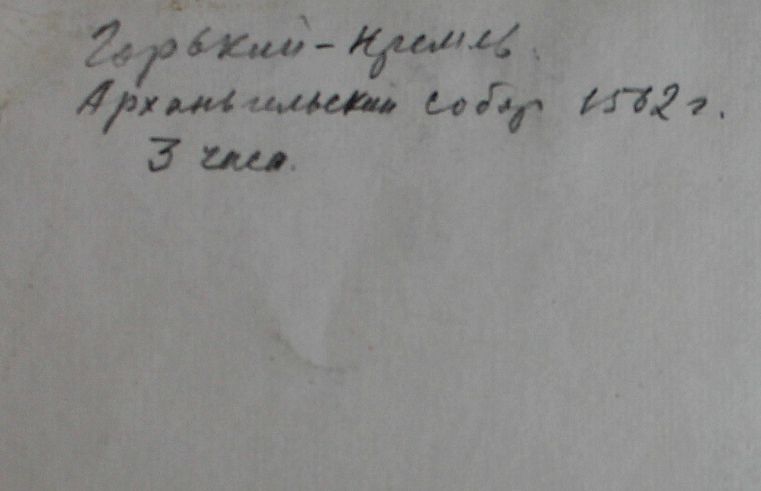 Горький – Кремль.
Архангельский собор 1562 г.
3 часа.